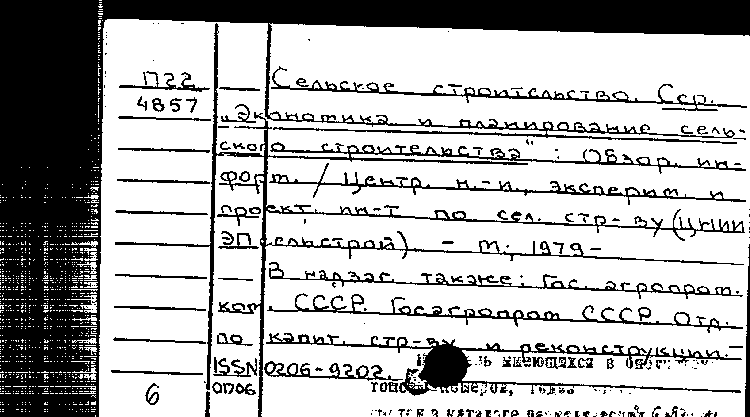 П22 Сельское строительство. Сер.
4857 „Экономика и планирование сель-
ского строительства" : Обзор. ин-
форм. / Центр. н.-и., эксперим. и
проект. ин-т по сел. стр-ву (ЦНИИ
ЭПсельстрой). – М., 1979–
В надзаг. также: Гос. агропром.
ком. СССР. Госагропром СССР. Отд.
по капит. стр-ву и реконструкции.–
ISSN 0206-9202.
имеющихся в
6 01706 номеров,
в каталоге